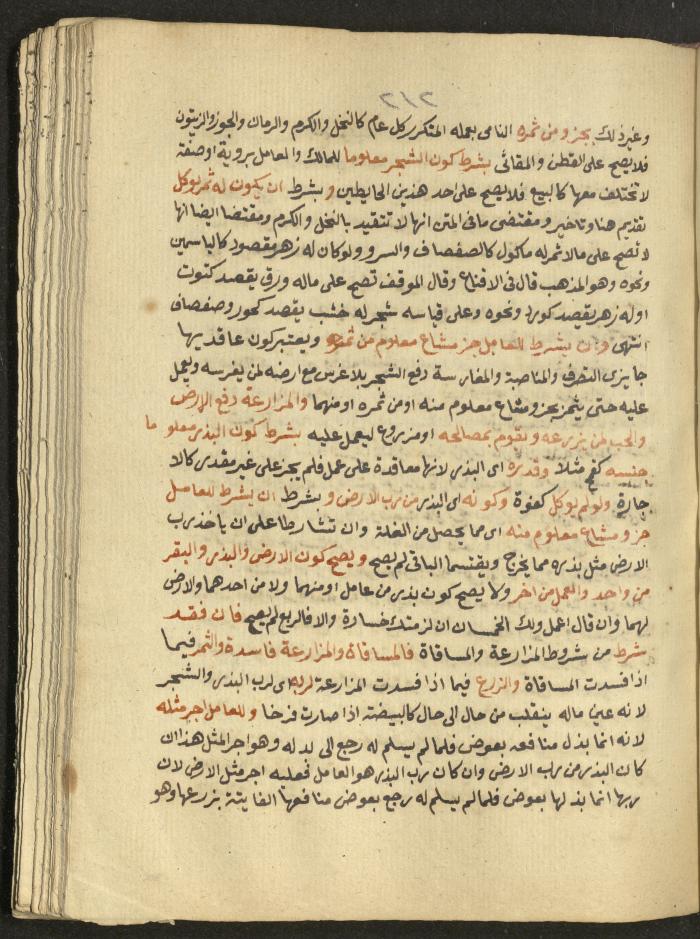 ٢١٢
وغير ذلك بجزء من ثمره النامي بعمله المتكرر كل عام كالنخل والكرم والرمان والجوز والزيتون
فلا يصح على القطن والمقاثي بشرط كون الشجر معلوما للمالك والعامل بروية او صفة
لا تختلف معها كالبيع فلا يصح على احد هذين الحايطين وبشرط ان يكون له ثمر يوكل
تقديم هنا وتاخير ومقتضى ما في المتن انها لا تتقيد بالنخل والكرم ومقتضا ايضا انها
لا تصح على ما لا ثمر له ماكول كالصفصاف والسرو ولو كان له زهر مقصود كالياسمين
ونحوه وهو المذهب قال في الاقناع وقال الموفق تصح على ماله ورق يقصد كتوت
او له زهر يقصد كورد ونحوه وعلى قياسه شجر له خشب يقصد كحور وصفصاف
انتهى وان يشرط للعامل جزء مشاع معلوم من ثمره ويعتبر كون عاقديها
جايزي التصرف والمناصبة والمغارسة دفع الشجر بلا غرس مع ارضه لمن يغرسه ويعمل
عليه حتى يثمر بجزء مشاع معلوم منه او من ثمره او منهما والمزارعة دفع الارض
والحب لمن يزرعه ويقوم بمصالحه او مزروع ليعمل عليه بشرط كون البذر معلو ما
جنسه كقمح مثلا وقدره اي البذر لانها معاقدة على عمل فلم يجز على غير مقدر كالا
جارة ولو لم يوكل كفوة وكونه اي البذر من رب الارض وبشرط ان يشرط للعامل
جزء مشاع معلوم منه اي مما يحصل من الغلة وان تشارطا على ان ياخذ رب
الارض مثل بذره مما يخرج ويقتسما الباقي لم يصح ويصح كون الارض والبذر والبقر
من واحد والعمل من اخر ولا يصح كون بذر من عامل او منهما ولا من احدهما والارض
لهما وان قال اعمل ولك الخمسان ان لزمتك خسارة والا فالربع لم يصح فان فقد
شرط من شروط المزارعة والمساقاة فالمساقاة والمزارعة فاسدة والثمر فيما
اذا فسدت المساقاة والزرع فيما اذا فسدت المزارعة لربه اي لرب البذر والشجر
لانه عين ماله ينقلب من حال الى حال كالبيضة اذا صارت فرخا وللعامل اجر مثله
لانه انما بذل منافعه بعوض فلما لم يسلم له رجع الى بدله وهو اجر المثل هذا ان
كان البذر من رب الارض وان كان رب البذر هو العامل فعليه اجر مثل الارض لان
ربها انما بذلها بعوض فلما لم يسلم له رجع بعوض منافعها الفايتة بزرعها وهو